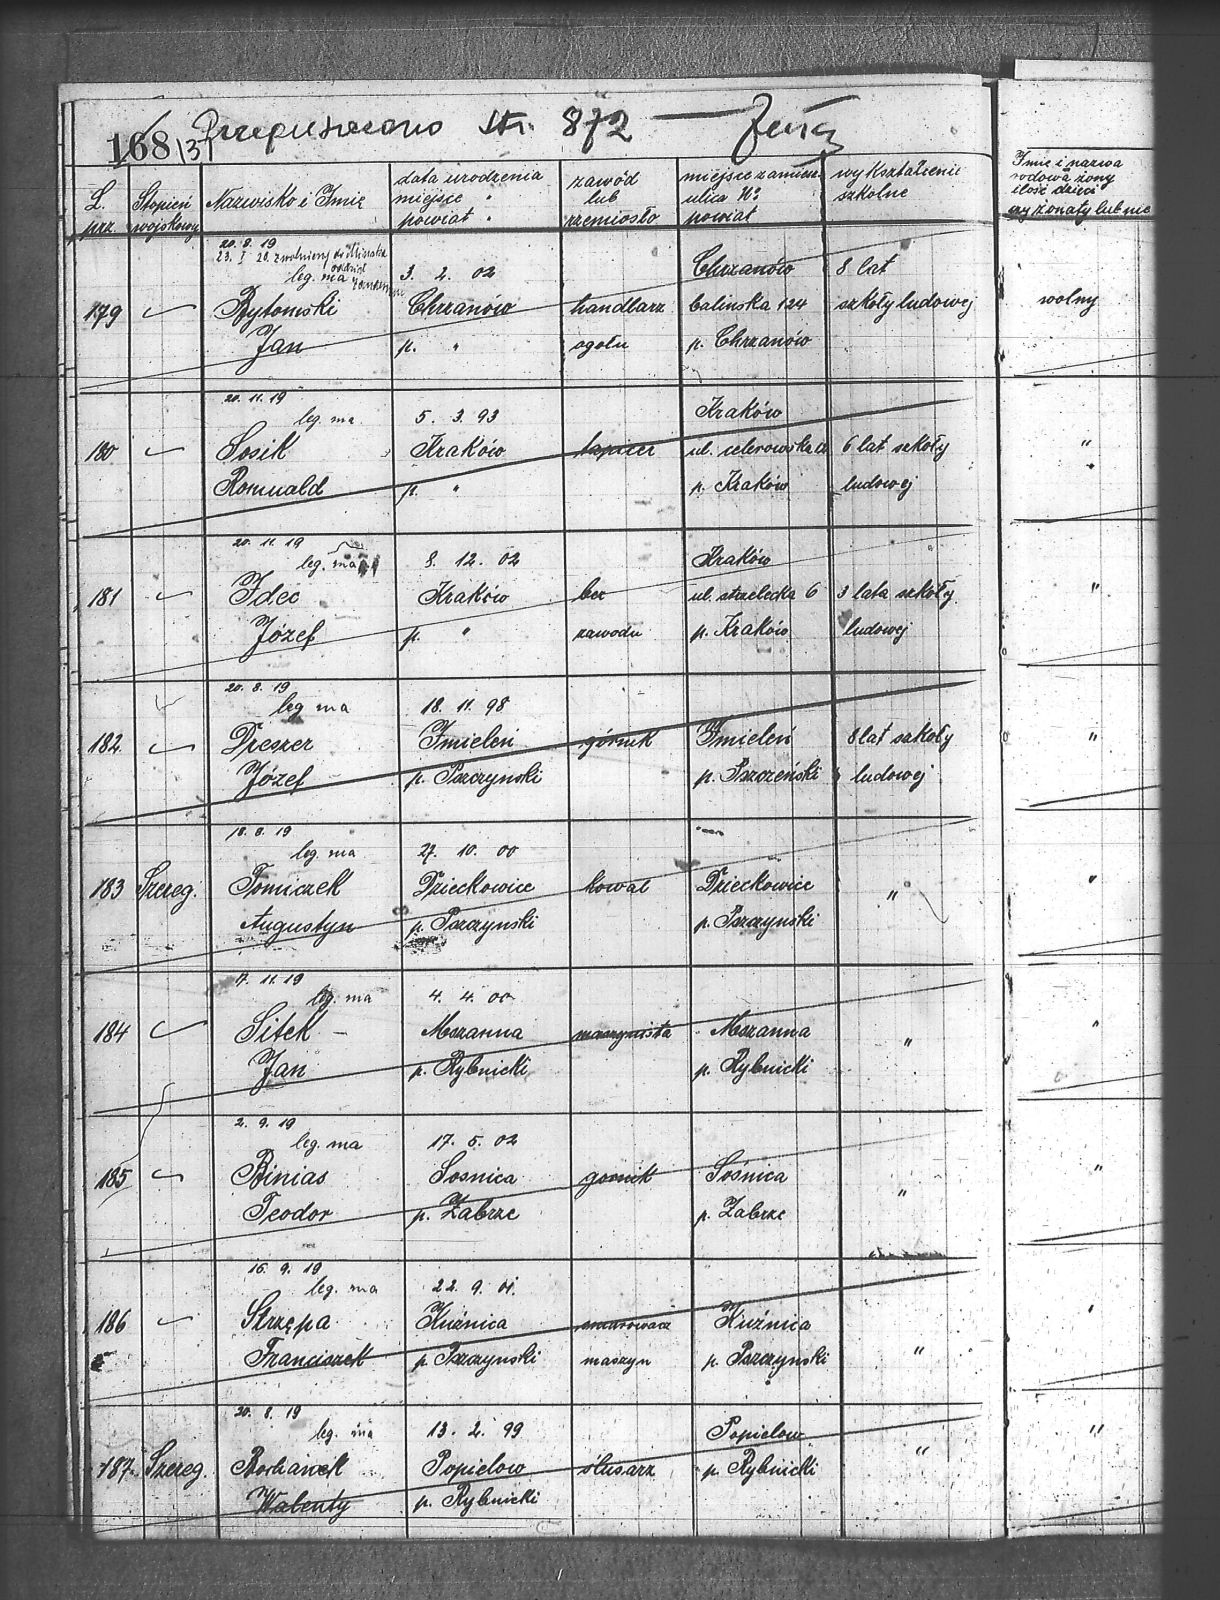 168 131 Przepuszczono str. 872
L. prz.
Stopień wojskowy
Nazwisko i Imię
data urodzenia
miejsce "
powiat "
zawód
lub
rzemiosło
miejsce zamiesz.
ulica No
powiat
wykształcenie
szkolne
Imię i nazwa
rodowa żony
ilość dzieci
czy żonaty lub nie
20. 8. 19
23. I 20. zwolniony do
leg. ma
3. 2. 02
Chrzanów
8 lat
179
Bytomski
Chrzanów
handlarz
124
szkoły ludowej
wolny
Jan
p. "
ogolu
p. Chrzanów
20. 11. 19
leg. ma
5. 3. 93
Kraków
180
Sosik
Kraków
tapicer
ul.
6 lat szkoły
"
Romuald
p. "
p. Kraków
ludowej
20. 11. 19
leg. ma
8. 12. 02
Kraków
181
Idec
Kraków
bez
ul. strzelecka 6
3 lata szkoły
"
Józef
p. "
zawodu
p. Kraków
ludowej
20. 8. 19
leg ma
18. 11. 98
182
Dreszer
Imieleń
górnik
Imieleń
8 lat szkoły
"
Józef
p. Pszczynski
p. Pszczeński
ludowej
18. 8. 19
leg. ma
27. 10. 00
183
Szereg.
Tomiczek
Dzieckowice
kowal
Dzieckowice
"
"
Augustyn
p. Pszczynski
p. Pszczynski
7. 11. 19
leg. ma
4. 4. 00
184
Sitek
Mszanna
maszynista
Mszanna
"
"
Jan
p. Rybnicki
p. Rybnicki
2. 9. 19
leg. ma
17. 5. 02
185
Binias
Sosnica
gornik
Sośnica
"
"
Teodor
p. Zabrze
p. Zabrze
16. 9. 19
leg. ma
22. 9. 01.
186
Strzępa
Kuźnica
smarowacz
Kuźnica
"
Franciszek
p. Pszczynski
maszyn
p. Pszczynski
"
20. 8. 19
leg. ma
13. 2. 99
Popielow
"
187
Szereg.
Popielow
ślusarz
p. Rybnicki
"
Walenty
p. Rybnicki